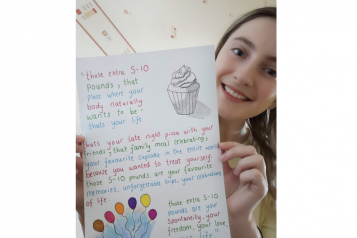 "those extra 5-10
pounds, that
place where your
body naturally
wants to be -
thats your life.
thats your late night pizza with your
friends, that family meal celebrating,
your favourite cupcake in the entire world
because you wanted to treat yourself.
those 5-10 pounds are your favourite
memories, unforgettable trips, your celebrations
of life.
those extra 5-10
pounds are your
spontaneity, your
freedom, your love,
your life"